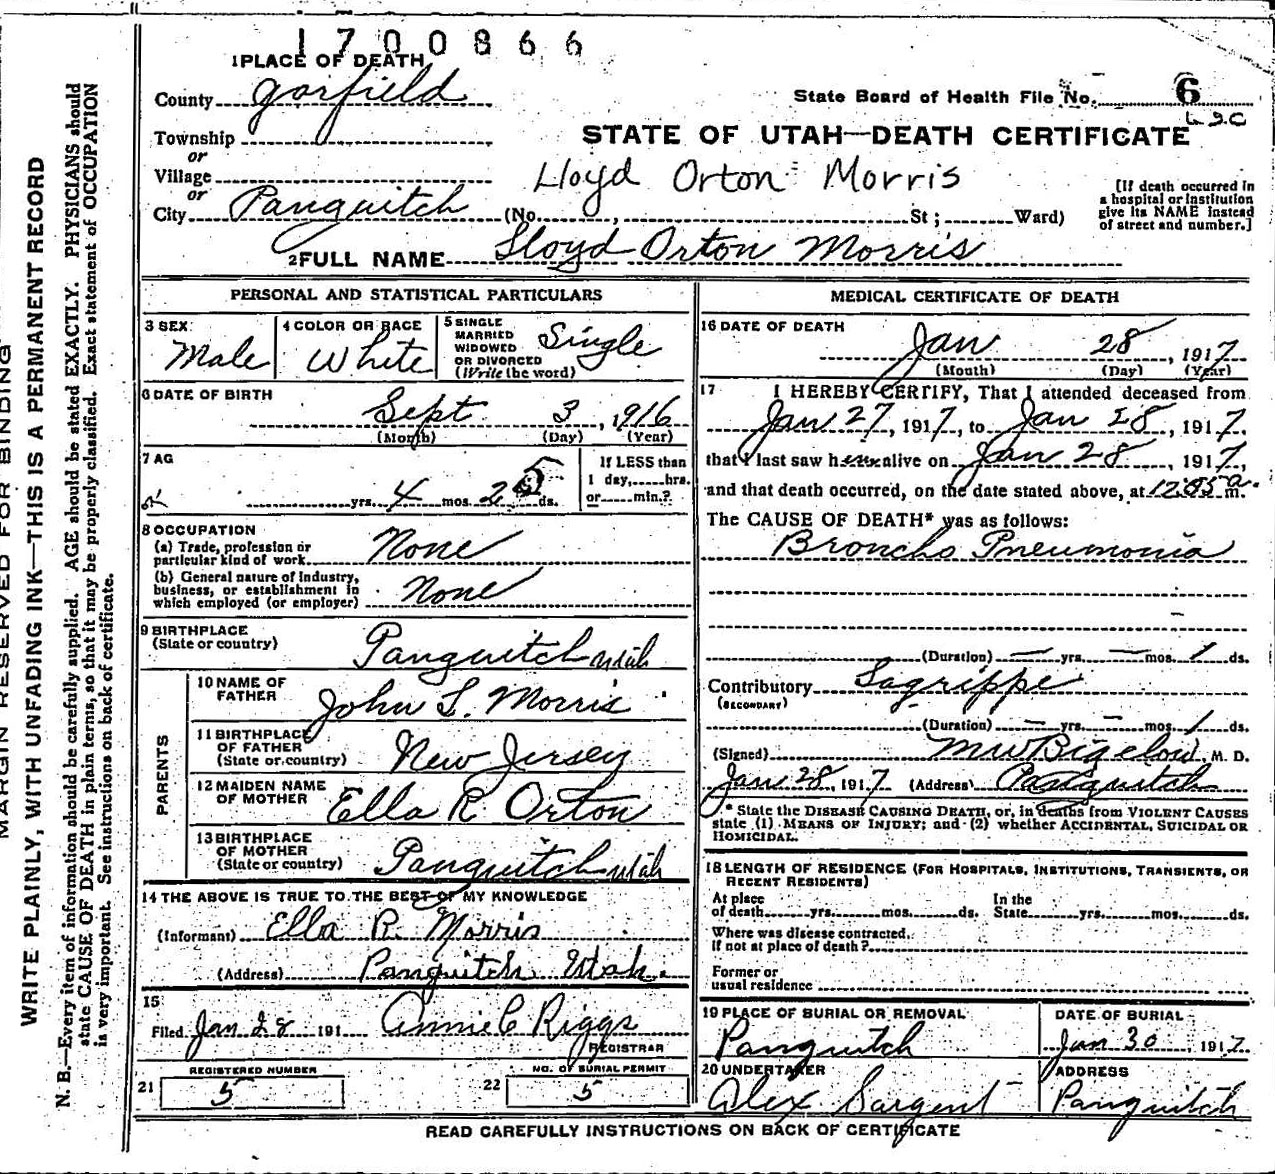 1700866
1 PLACE OF DEATH
County Garfield
State Board of Health File No. 6
Township
STATE OF UTAH—DEATH CERTIFICATE
or
Village
Lloyd Orton Morris
or
City Panguitch (No. , St ; Ward)
[If death occurred in
a hospital or institution
give its NAME instead
of street and number.]
2 FULL NAME Lloyd Orton Morris
PERSONAL AND STATISTICAL PARTICULARS
3 SEX Male
4 COLOR OR RACE White
5 SINGLE
MARRIED
WIDOWED
OR DIVORCED
(Write the word)
Single
6 DATE OF BIRTH
Sept 3, 1916
(Month) (Day) (Year)
7 AG
yrs. 4 mos. 25 ds.
If LESS than
1 day, hrs.
or min.?
8 OCCUPATION
(a) Trade, profession or
particular kind of work None
(b) General nature of industry,
business, or establishment in
which employed (or employer) None
9 BIRTHPLACE
(State or country) Panguitch Utah
PARENTS
10 NAME OF
FATHER John S. Morris
11 BIRTHPLACE
OF FATHER
(State or country) New Jersey
12 MAIDEN NAME
OF MOTHER Ella R Orton
13 BIRTHPLACE
OF MOTHER
(State or country) Panguitch Utah
14 THE ABOVE IS TRUE TO THE BEST OF MY KNOWLEDGE
(Informant) Ella R. Morris
(Address) Panguitch Utah.
15
Filed Jan 28 191 Annie C Riggs
REGISTRAR
REGISTERED NUMBER
21 5
NO. OF BURIAL PERMIT
22 5
MEDICAL CERTIFICATE OF DEATH
16 DATE OF DEATH
Jan 28, 1917
(Month) (Day) (Year)
17 I HEREBY CERTIFY, That I attended deceased from
Jan 27, 1917, to Jan 28, 1917,
that I last saw h alive on Jan 28, 1917,
and that death occurred, on the date stated above, at m.
The CAUSE OF DEATH* was as follows:
Broncho Pneumonia
(Duration) — yrs. — mos. 1 ds.
Contributory Lagrippe
(SECONDARY)
(Duration) — yrs. — mos. 1 ds.
(Signed) MW Bigelow, M. D.
Jan 28, 1917 (Address) Panguitch
* State the DISEASE CAUSING DEATH, or, in deaths from VIOLENT CAUSES
state (1) MEANS OF INJURY; and (2) whether ACCIDENTAL, SUICIDAL OR
HOMICIDAL.
18 LENGTH OF RESIDENCE (FOR HOSPITALS, INSTITUTIONS, TRANSIENTS, OR
RECENT RESIDENTS)
At place
of death yrs. mos. ds.
In the
State yrs. mos. ds.
Where was disease contracted,
if not at place of death?
Former or
usual residence
19 PLACE OF BURIAL OR REMOVAL
Panguitch
DATE OF BURIAL
Jan 30, 1917
20 UNDERTAKER
Alex Sargent
ADDRESS
Panguitch
READ CAREFULLY INSTRUCTIONS ON BACK OF CERTIFICATE
MARGIN RESERVED FOR BINDING
WRITE PLAINLY, WITH UNFADING INK—THIS IS A PERMANENT RECORD
N. B.—Every item of information should be carefully supplied. AGE should be stated EXACTLY. PHYSICIANS should
state CAUSE OF DEATH in plain terms, so that it may be properly classified. Exact statement of OCCUPATION
is very important. See instructions on back of certificate.